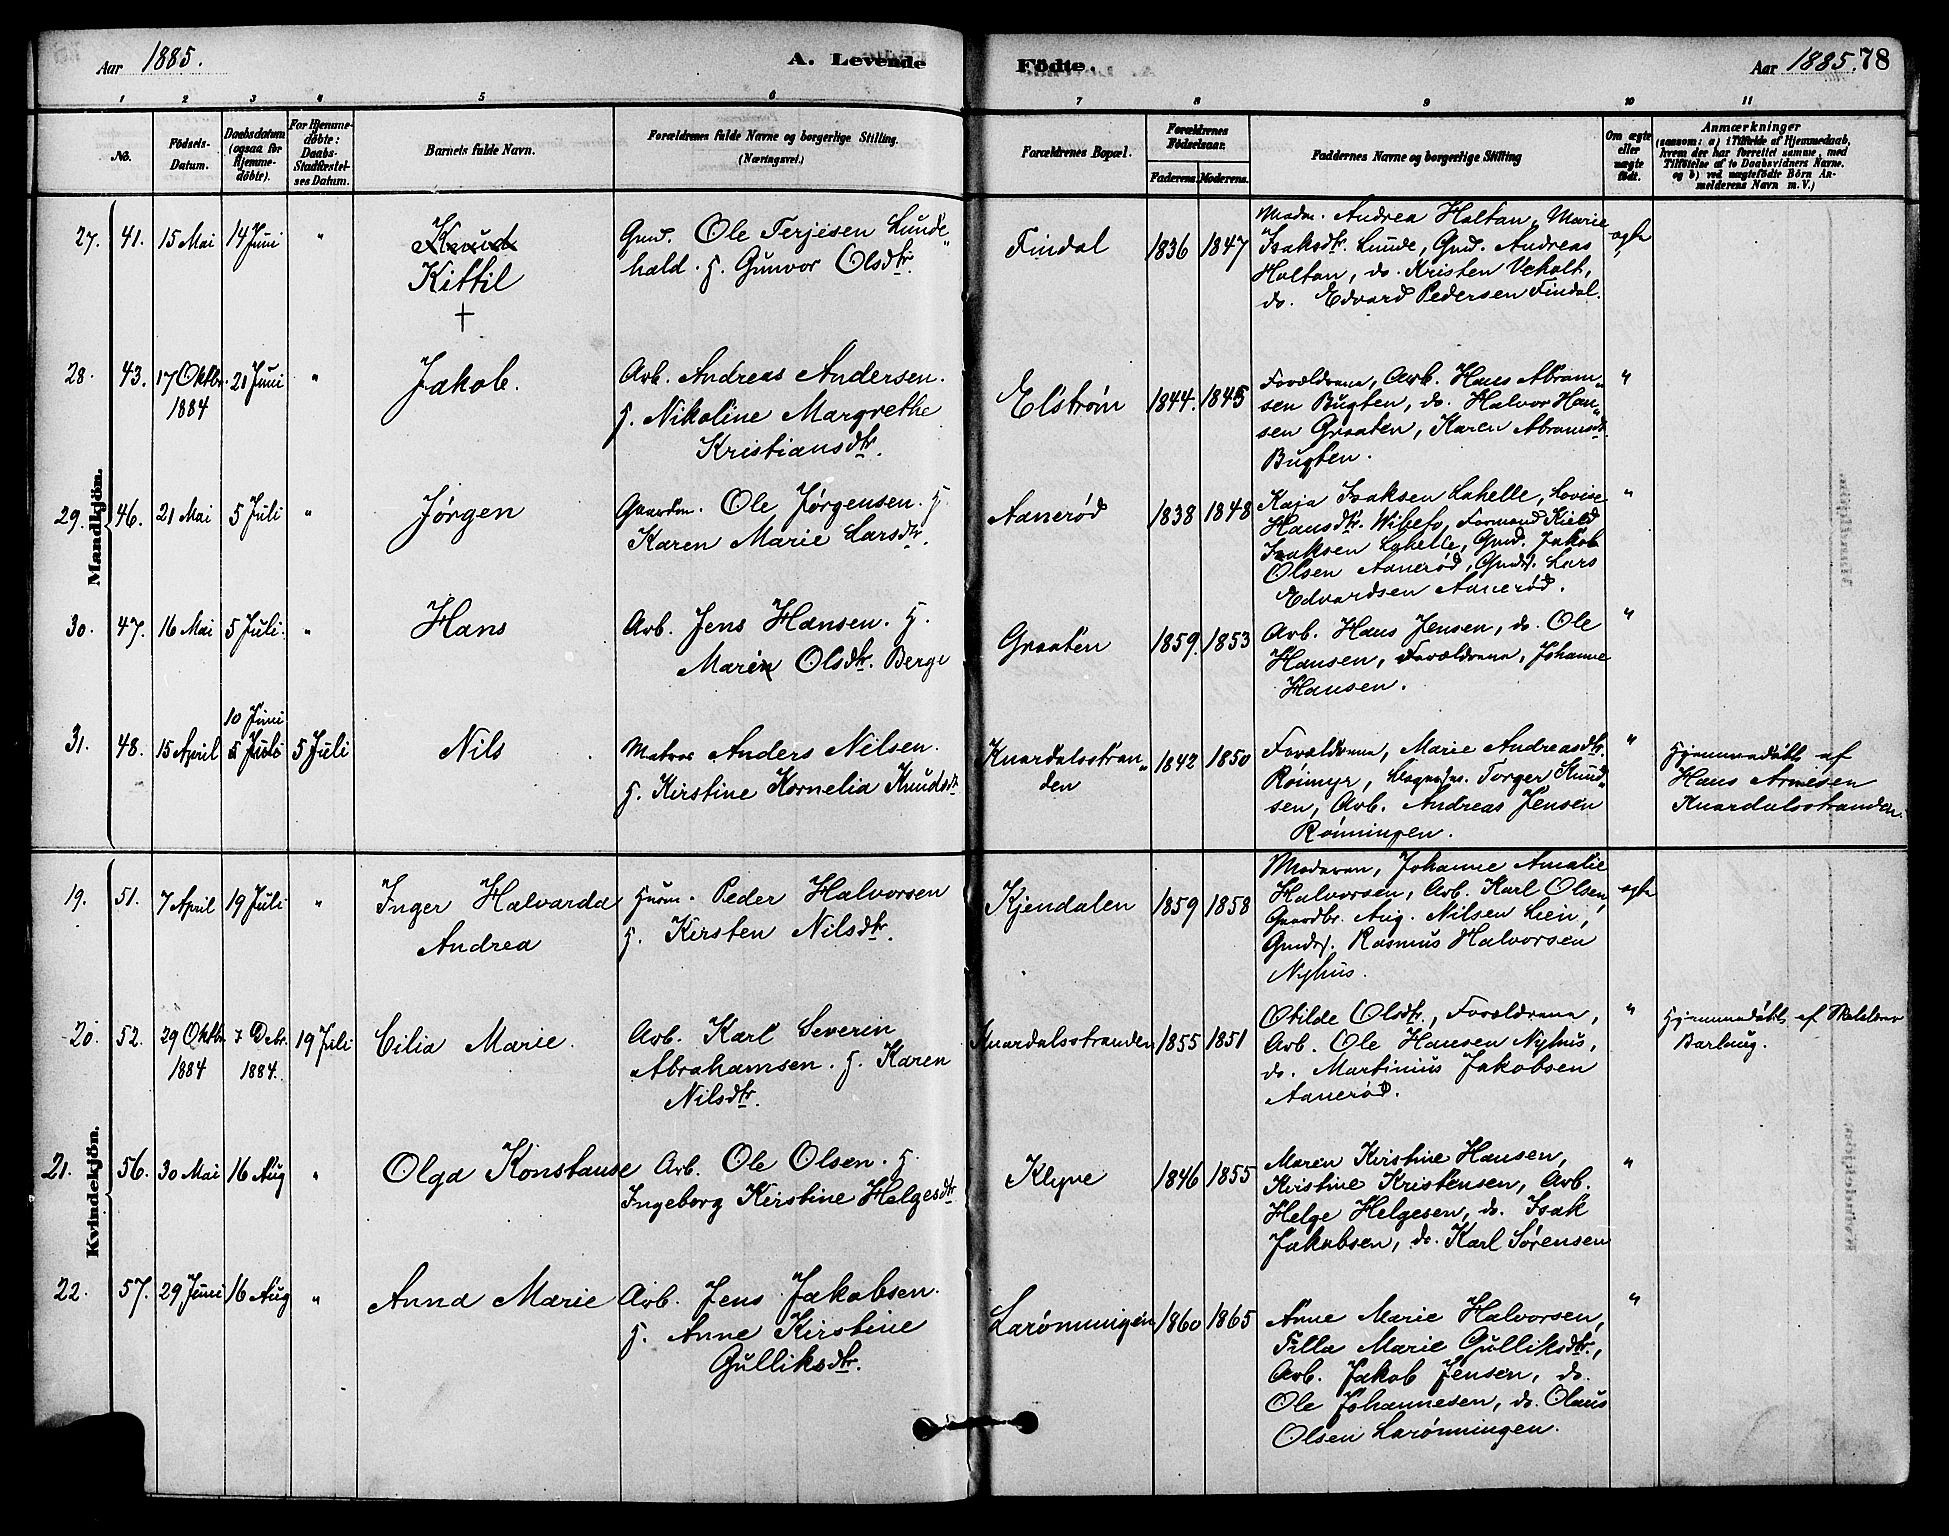 Aar 1885. A. Levende Födte. Aar 1885. 78
1 2 3 4 5 6 7 8 9 10 11
No.
Födsels-
Datum.
Daabsdatum
(ogsaa for
Hjemme-
döbte).
For Hjemme-
döbte:
Daabs-
Stadfæstel-
ses Datum.
Barnets fulde Navn.
Forældrenes fulde Navne og borgerlige Stilling.
(Næringsvei.)
Forældrenes Bopæl.
Forældrenes
Födselsaar.
Faderens. Moderens.
Faddernes Navne og borgerlige Stilling
Om ægte
eller
uægte
födt.
Anmærkninger
(saasom: a) i Tilfælde af Hjemmedaab,
hvem der har forrettet samme, med
Tilföielse af to Daabsvidners Navne.
og b) ved uægtefödte Börn An-
melderens Navn m. V.)
Mandkjön.
27. 41. 15 Mai 14 Juni "
Knud
Kittil
+
Gmd. Ole Terjesen Lunde"
hald. H. Gunvor Olsdtr.
Findal 1836 1847
Madm. Andrea Holtan, Marie
Isaksdtr. Lunde, Gmd. Andreas
Holtan, do. Kristen Vekolt,
do. Edvard Pedersen Findal.
ægte
28. 43. 17 Oktbr. 21 Juni "
1884
Jakob.
Arb. Andreas Andersen.
H. Nikoline Margrethe
Kristiansdtr.
Elstrøm 1844. 1845
Forældrene, Arb. Hans Abram"
sen Bugten, do. Halvor Han"
sen Graaten, Karen Abramsdtr.
Bugten.
"
29. 46. 21 Mai 5 Juli "
Jørgen
Gaardm. Ole Jørgensen. H
Karen Marie Larsdtr.
Aanerød 1838 1848
Kaja Isaksen Lahelle, Lovise
Hansdtr. Wibeto, Formand Kield
Isaksen Lahelle, Gmd. Jakob
Olsen Aanerød, Gmds. Lars
Edvardsen Aanerød.
"
30. 47. 16 Mai 5 Juli. "
Hans
Arb. Jens Hansen. H.
Maren Olsdtr. Berge
Graaten 1859. 1853
Arb. Hans Jensen, do. Ole
Hansen, Forældrene, Johanne
Hansen.
"
10 Juni
31. 48. 15 April 5 Juli 5 Juli
Nils
Matros Anders Nilsen.
H. Kirstine Kornelia Knudsdtr
Knardalsstran"
den
1842 1850
Forældrene, Marie Andreasdtr.
Røimyr, Torger Knud"
sen, Arb. Andreas Jensen
Rønningen.
"
Hjemmedøbt af
Hans Arnesen
Knardalsstranden.
Kvindekjön.
19. 51. 7 April 19 Juli "
Inger Halvarda
Andrea
Husm. Peder Halvorsen
H. Kirsten Nilsdtr.
Kjendalen 1859 1858
Moderen, Johanne Amalie
Halvorsen, Arb. Karl Olsen,
Gaardbr. Aug. Nilsen Lien,
Gmds. Rasmus Halvorsen
Nyhus.
ægte
20. 52. 29 Oktbr 7 Debr. 19 Juli
1884 1884.
Cilia Marie.
Arb. Karl Severin
Abrahamsen. H. Karen
Nilsdtr.
Knardalsstranden 1855 1851
Otilde Olsdtr., Forældrene,
Arb. Ole Hansen Nyhus,
do. Martinius Jakobsen
Aanerød.
"
Hjemmedøbt af
Barlaug.
21. 56. 30 Mai 16 Aug "
Olga Konstanse
Arb. Ole Olsen. H.
Ingeborg Kirstine Helgesdtr
Klyve 1846 1855
Maren Kirstine Hansen,
Kristine Kristensen, Arb.
Helge Helgesen, do. Isak
Jakobsen, do. Karl Sørensen
"
22. 57. 29 Juni 16 Aug "
Anna Marie
Arb. Jens Jakobsen.
H. Anne Kirstine
Gulliksdtr.
Larønningen 1860 1865
Anne Marie Halvorsen,
Tilla Marie Gulliksdtr.,
Arb. Jakob Jensen, do.
Ole Johannesen, do. Olaus
Olsen Larønningen.
"